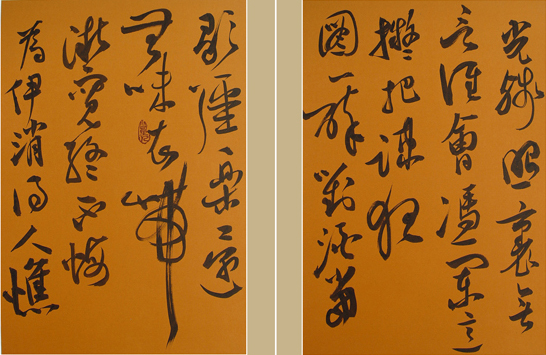 光殘照裏無
言誰會憑闌意
擬把疎狂
圖一醉對酒當
歌彊樂還
無味衣帶
漸寬終不悔
為伊消得人憔